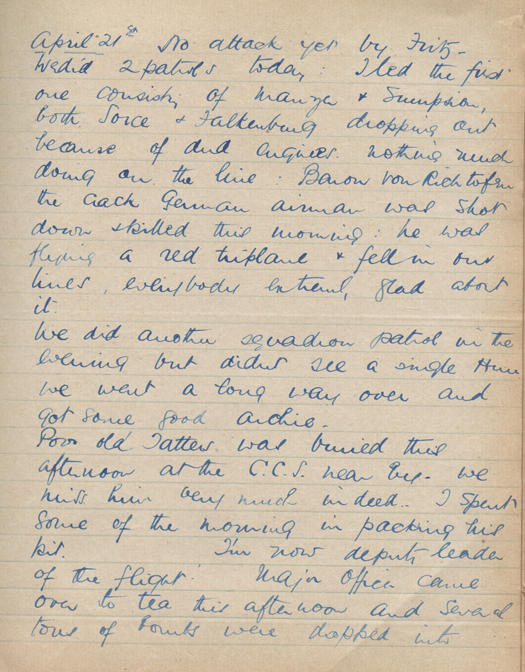 April 21st No attack yet by Fritz-
We did 2 patrols today: I led the first
one consistig of Manzer & Sumpsion,
both Sorce & Falkenburg dropping out
because of dud engines. nothing much
doing on the line: Baron von Richtofen
the crack German airman was shot
down & killed this morning: he was
flying a red triplane & fell in our
lines, everybody extremely glad about
it.
We did another squadron patrol in the
evening but didnt see a single Hun
we went a long way over and
got some good archie.
Poor old Tatters was buried this
afternoon at the C.C.S. near we
miss him very much indeed. I spent
some of the morning in packing his
kit. I'm now deputy leader
of the flight. Major Officer came
over to tea this afternoon and several
tons of bombs were dropped into